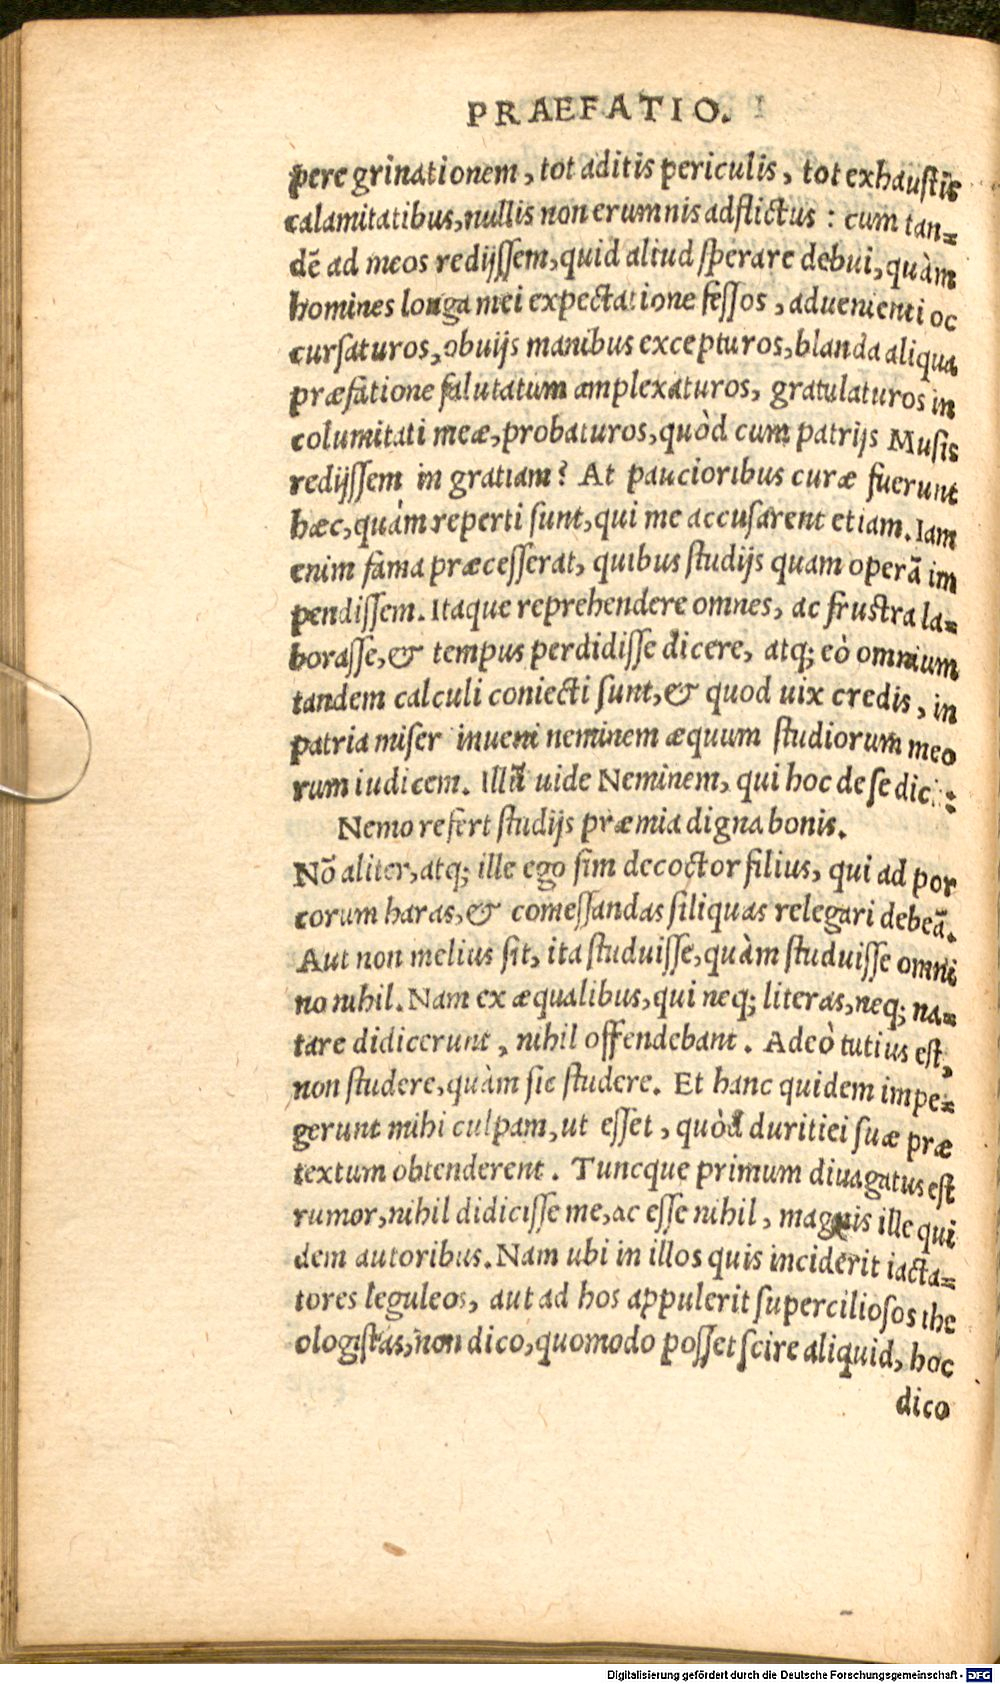 PRAEFATIO.
peregrinationem, tot aditis periculis, tot exhaustis
calamitatibus, nullis non erumnis adflictus: cum tan=
dē ad meos redijssem, quid aliud sperare debui, quàm
homines longa mei expectatione fessos, aduenienti oc
cursaturos, obuijs manibus excepturos, blanda aliqua
præfatione salutatum amplexaturos, gratulaturos in
columitati meæ, probaturos, quòd cum patrijs Musis
redijssem in gratiam? At paucioribus curæ fuerunt
hæc, quàm reperti sunt, qui me accusarent etiam. Iam
enim fama præcesserat, quibus studijs quam operā im
pendissem. Itaque reprehendere omnes, ac frustra la=
borasse, & tempus perdidisse dicere, atq; eò omnium
tandem calculi coniecti sunt, & quod uix credis, in
patria miser inueni neminem æquum studiorum meo
rum iudicem. Illū uide Neminem, qui hoc de se
Nemo refert studijs præmia digna bonis.
Nō aliter, atq; ille ego sim decoctor filius, qui ad por
corum haras, & comessandas siliquas relegari debeā.
Aut non melius sit, ita studuisse, quàm studuisse omni
no nihil. Nam ex æqualibus, qui neq; literas, neq; na=
tare didicerunt, nihil offendebant. Adeò tutius est,
non studere, quàm sic studere. Et hanc quidem impe=
gerunt mihi culpam, ut esset, quòd duritiei suæ præ
textum obtenderent. Tuncque primum diuagatus est
rumor, nihil didicisse me, ac esse nihil, magnis ille qui
dem autoribus. Nam ubi in illos quis inciderit iacta=
tores leguleos, aut ad hos appulerit superciliosos the
ologistas, non dico, quomodo posset scire aliquid, hoc
dico
Digitalisierung gefördert durch die Deutsche Forschungsgemeinschaft - DFG